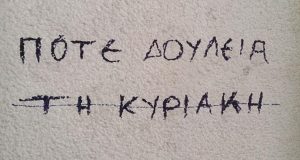 ΠΟΤΕ ΔΟΥΛΕΙΑ
ΤΗ ΚΥΡΙΑΚΗ